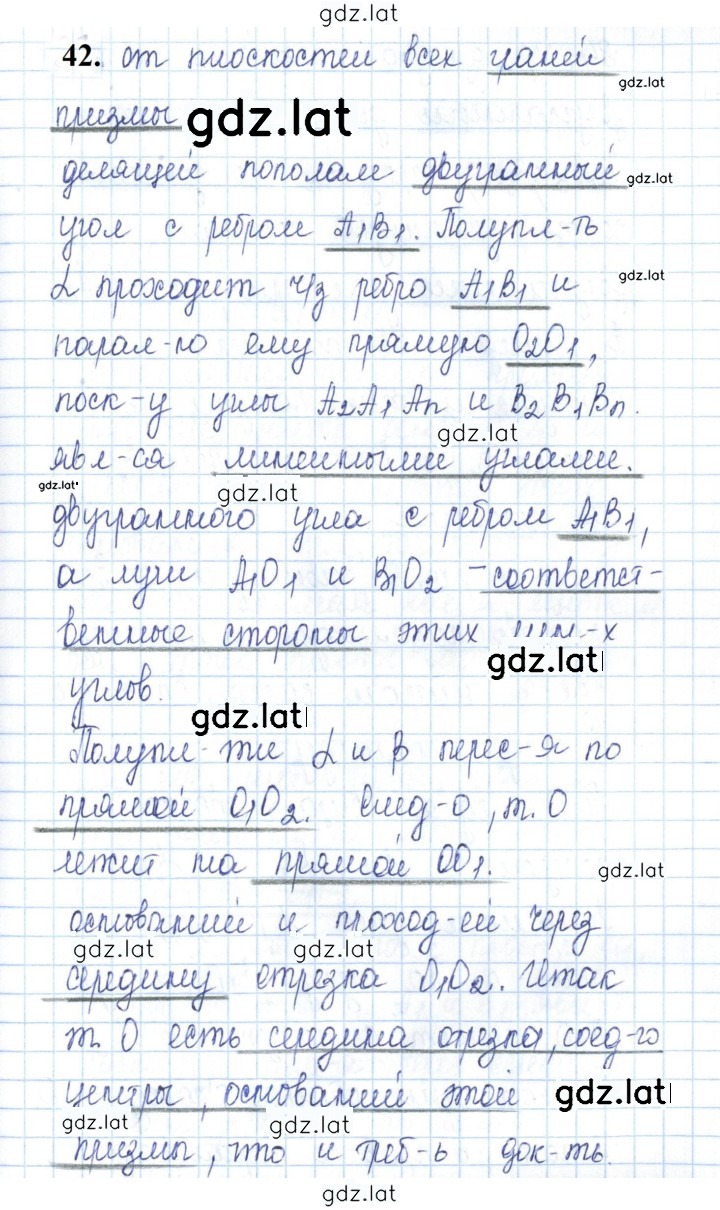 gdz.lat
42. от плоскостей всех граней
gdz.lat
призмы gdz.lat
делящей пополам двугранный gdz.lat
угол с ребром A₁B₁. Полупл-ть
α проходит ч/з ребро A₁B₁ и gdz.lat
парал-но ему прямую O₂O₁,
поск-у углы A₂A₁Aₙ и B₂B₁Bₙ.
gdz.lat
явл-ся линейными углами.
gdz.lat gdz.lat
двугранного угла с ребром A₁B₁,
а лучи A₁O₁ и B₁O₂ – соответст-
венные стороны этих
gdz.lat
углов.
gdz.lat
Полупл-ти α и β перес-я по
прямой O₁O₂. След-о, т. O
лежит на прямой OO₁. gdz.lat
оснований и проход-ей через
gdz.lat gdz.lat
середину отрезка O₁O₂. Итак
т. O есть середина отрезка, соед-го
центры, оснований этой gdz.lat
gdz.lat gdz.lat
призмы, что и треб-ь док-ть.
gdz.lat